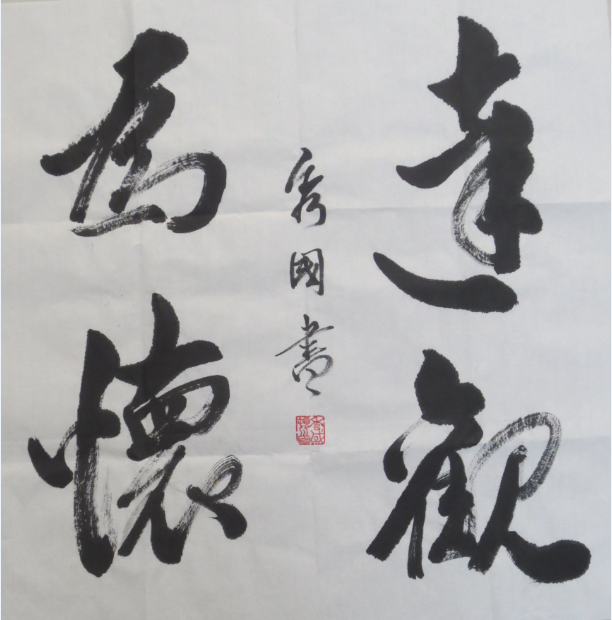 達觀
為懷
秀國書